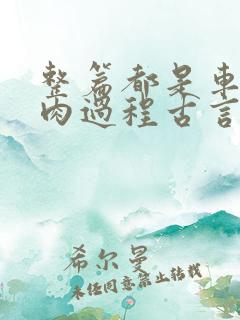 整篇都是車
肉過程古言
希尔曼
未经同意禁止转载